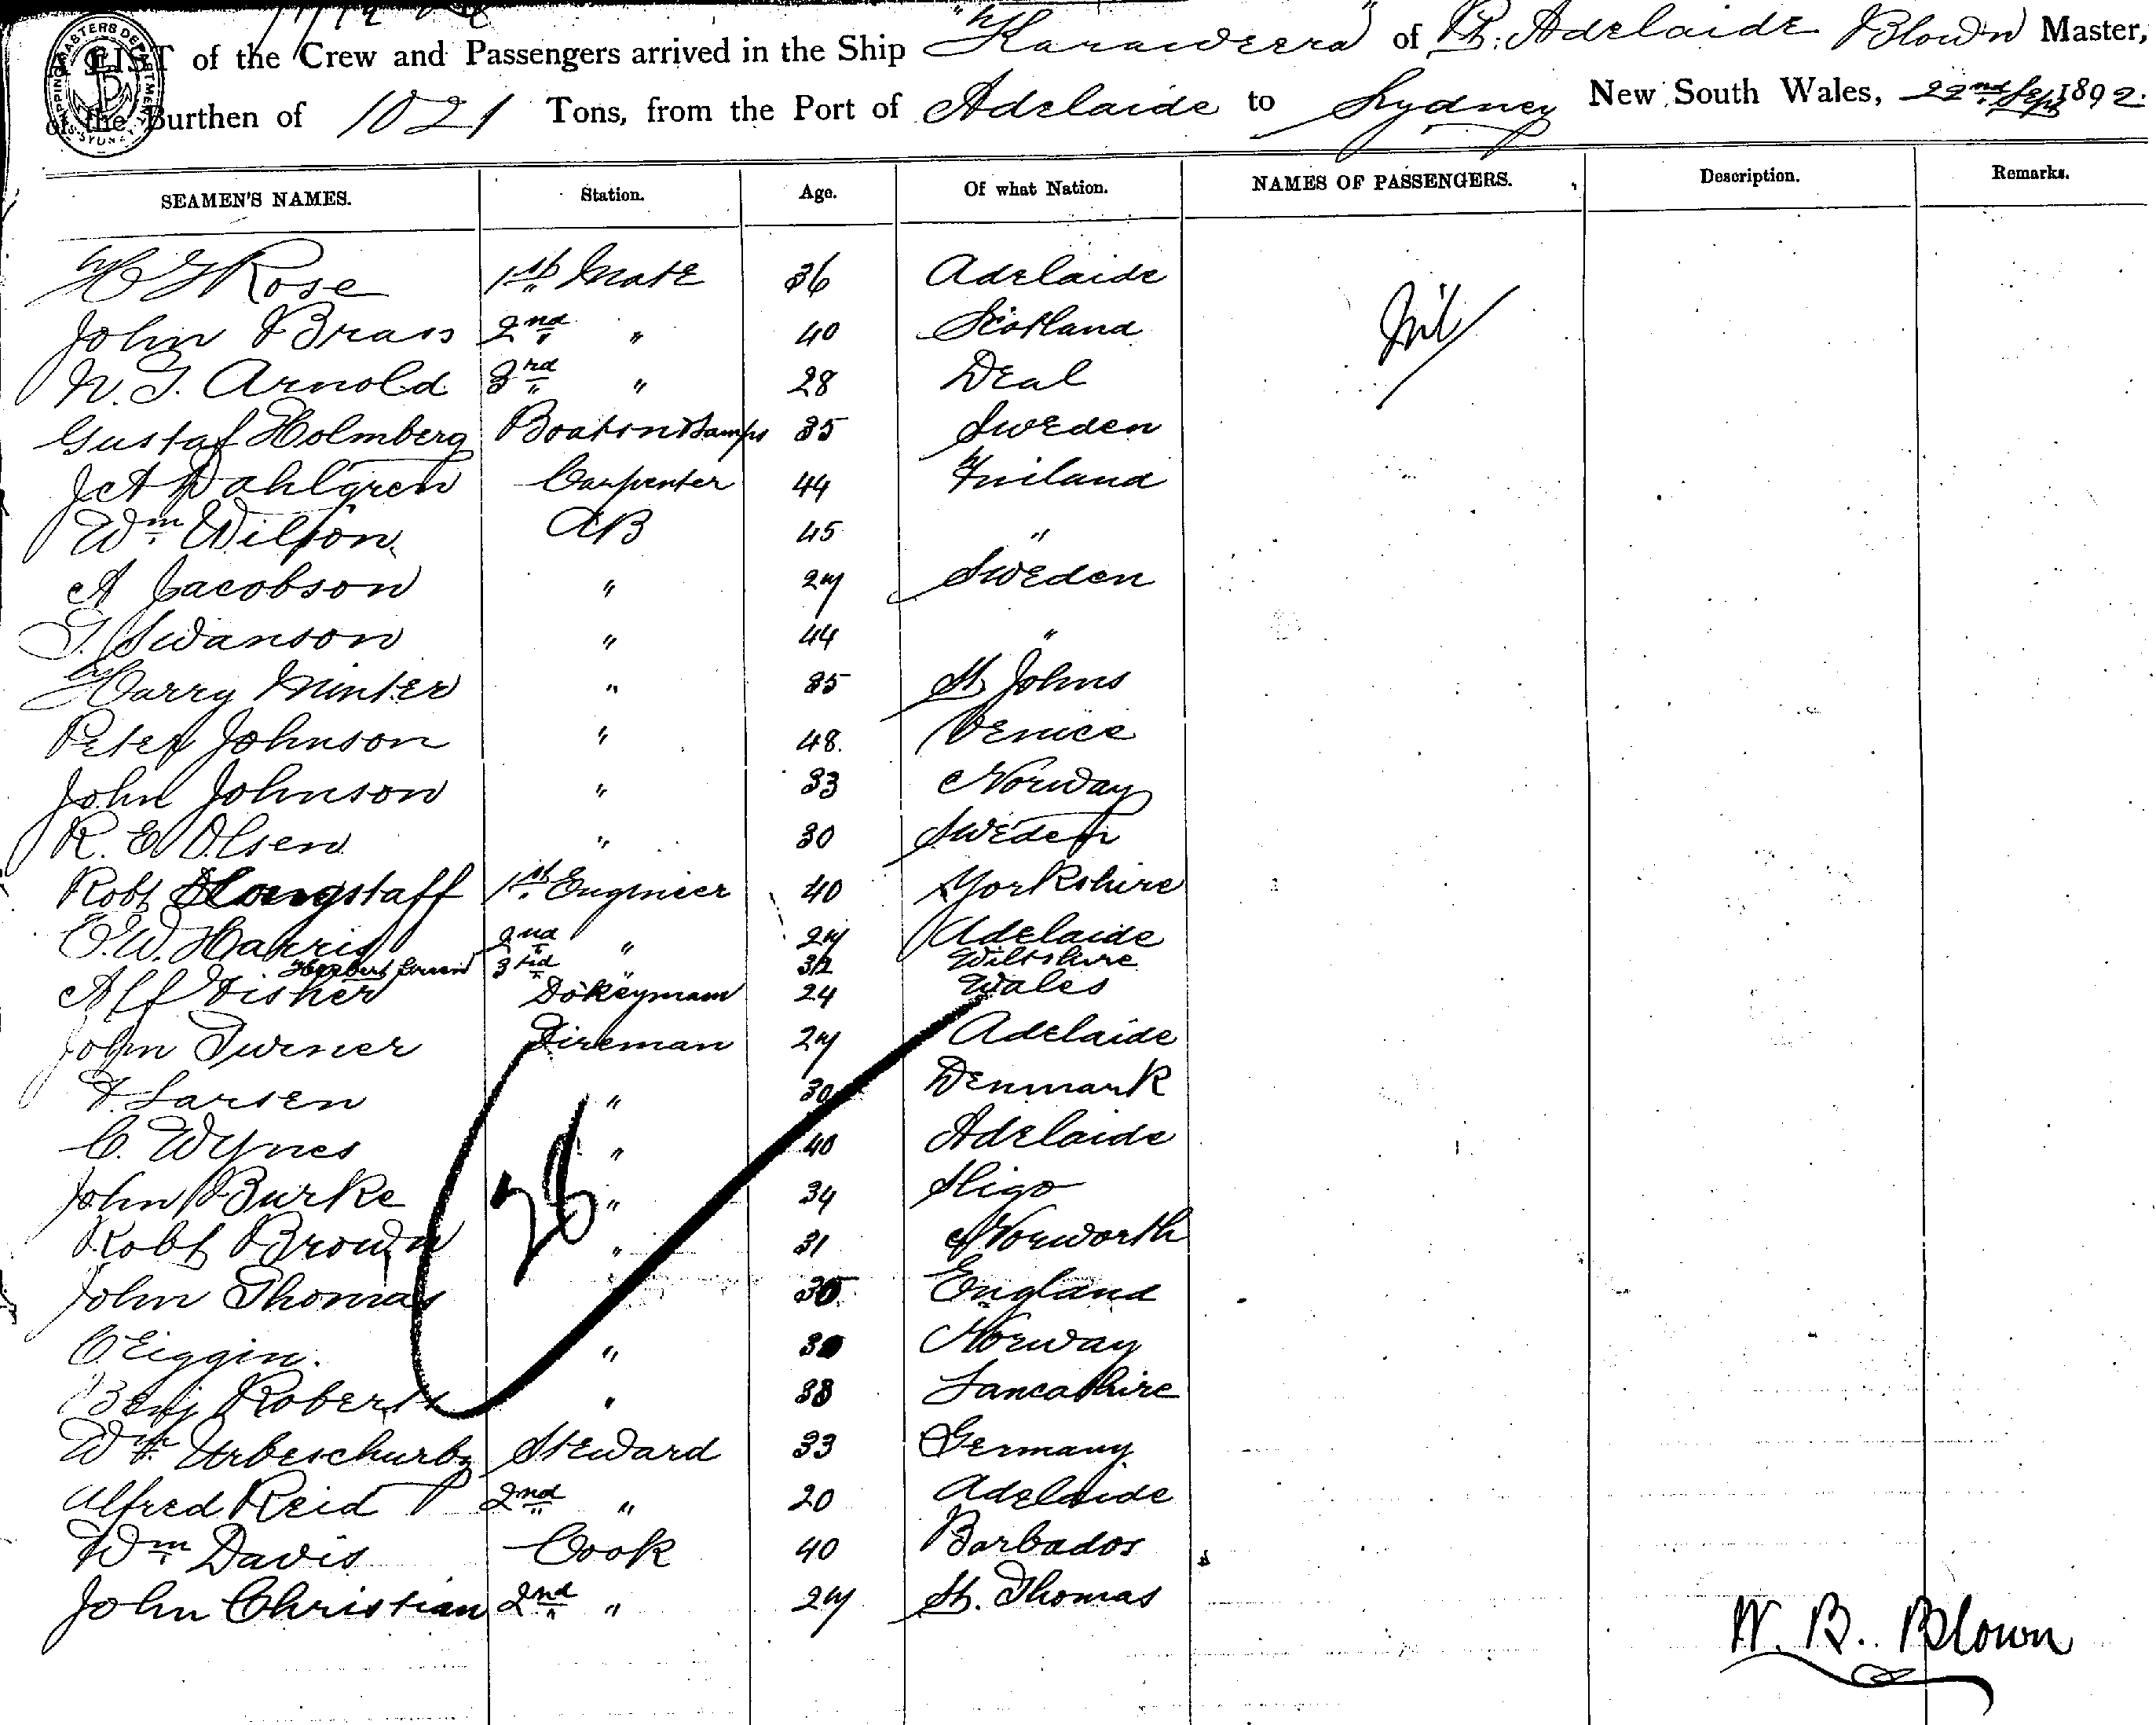 A LIST of the Crew and Passengers arrived in the Ship "Karaweera" of Pt. Adelaide Blown Master,
of the Burthen of 1021 Tons, from the Port of Adelaide to Sydney New South Wales, 22nd Sept 1892.
SEAMEN'S NAMES. Station. Age. Of what Nation. NAMES OF PASSENGERS. Description. Remarks.
H G Rose 1st Mate 36 Adelaide
Nil
John Brass 2nd " 40 Scotland
W. J. Arnold 3rd " 28 Deal
Gustaf Holmberg Boatsn & Lamps 35 Sweden
J A Dahlgren Carpenter 44 Finland
Wm Wilson AB 45 "
A Jacobson " 27 Sweden
J. Swanson " 44 "
Harry Minter " 35 St Johns
Peter Johnson " 48 Venice
John Johnson " 33 Norway
R. E Olsen " 30 Sweden
Robt Longstaff 1st Engineer 40 Yorkshire
E. W. Harris 2nd " 27 Adelaide
Herbert Green 3rd " 32 Wiltshire
Alf Fisher Dokeyman 24 Wales
John Turner Fireman 27 Adelaide
F Larsen " 30 Denmark
C. Wynes " 40 Adelaide
John Burke " 34 Sligo
Robt Brown " 31 Norworth
John Thomas 35 England
C Eiggin. " Norway
Benj Roberts " 38 Lancashire
Wm Steward 33 Germany
Alfred Reid 2nd " 20 Adelaide
Wm Davis Cook 40 Barbados
John Christian 2nd " 27 St. Thomas
W. B. Blown